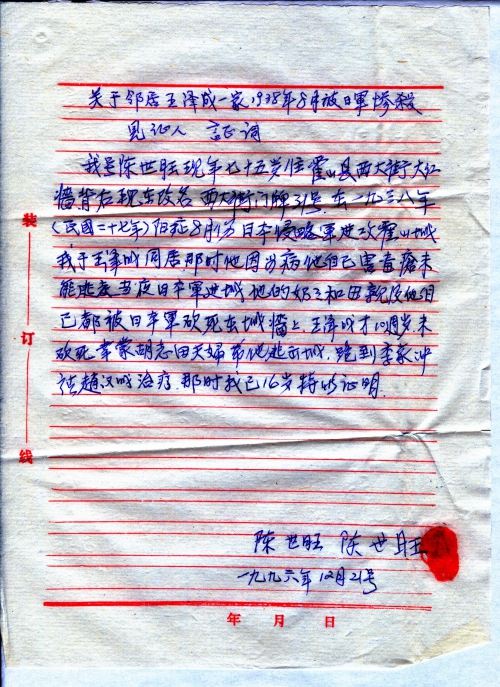 关于邻居王泽成一家1938年8月被日軍惨殺
見证人 証词
我号陈世旺现年七十五岁住霍山县西大街大红
墙背后现东改名西大街门牌31号.在一九三八年
(民國二十七年)阳历8月份日本侵略軍进攻霍山城
我于王泽成同居那时他因为病他自己害毒疮未
能逃走当夜日本軍进城他的奶和母親及他自
已都被日本軍砍死在城墙上王泽成才10周岁未
砍死幸蒙胡志田夫婦帶他逃出城.跑到李家冲
赵汉城治疗.那时我已16岁特此证明.
陈世旺 陈世旺
一九九六年12月21号
装
订
线
年 月 日